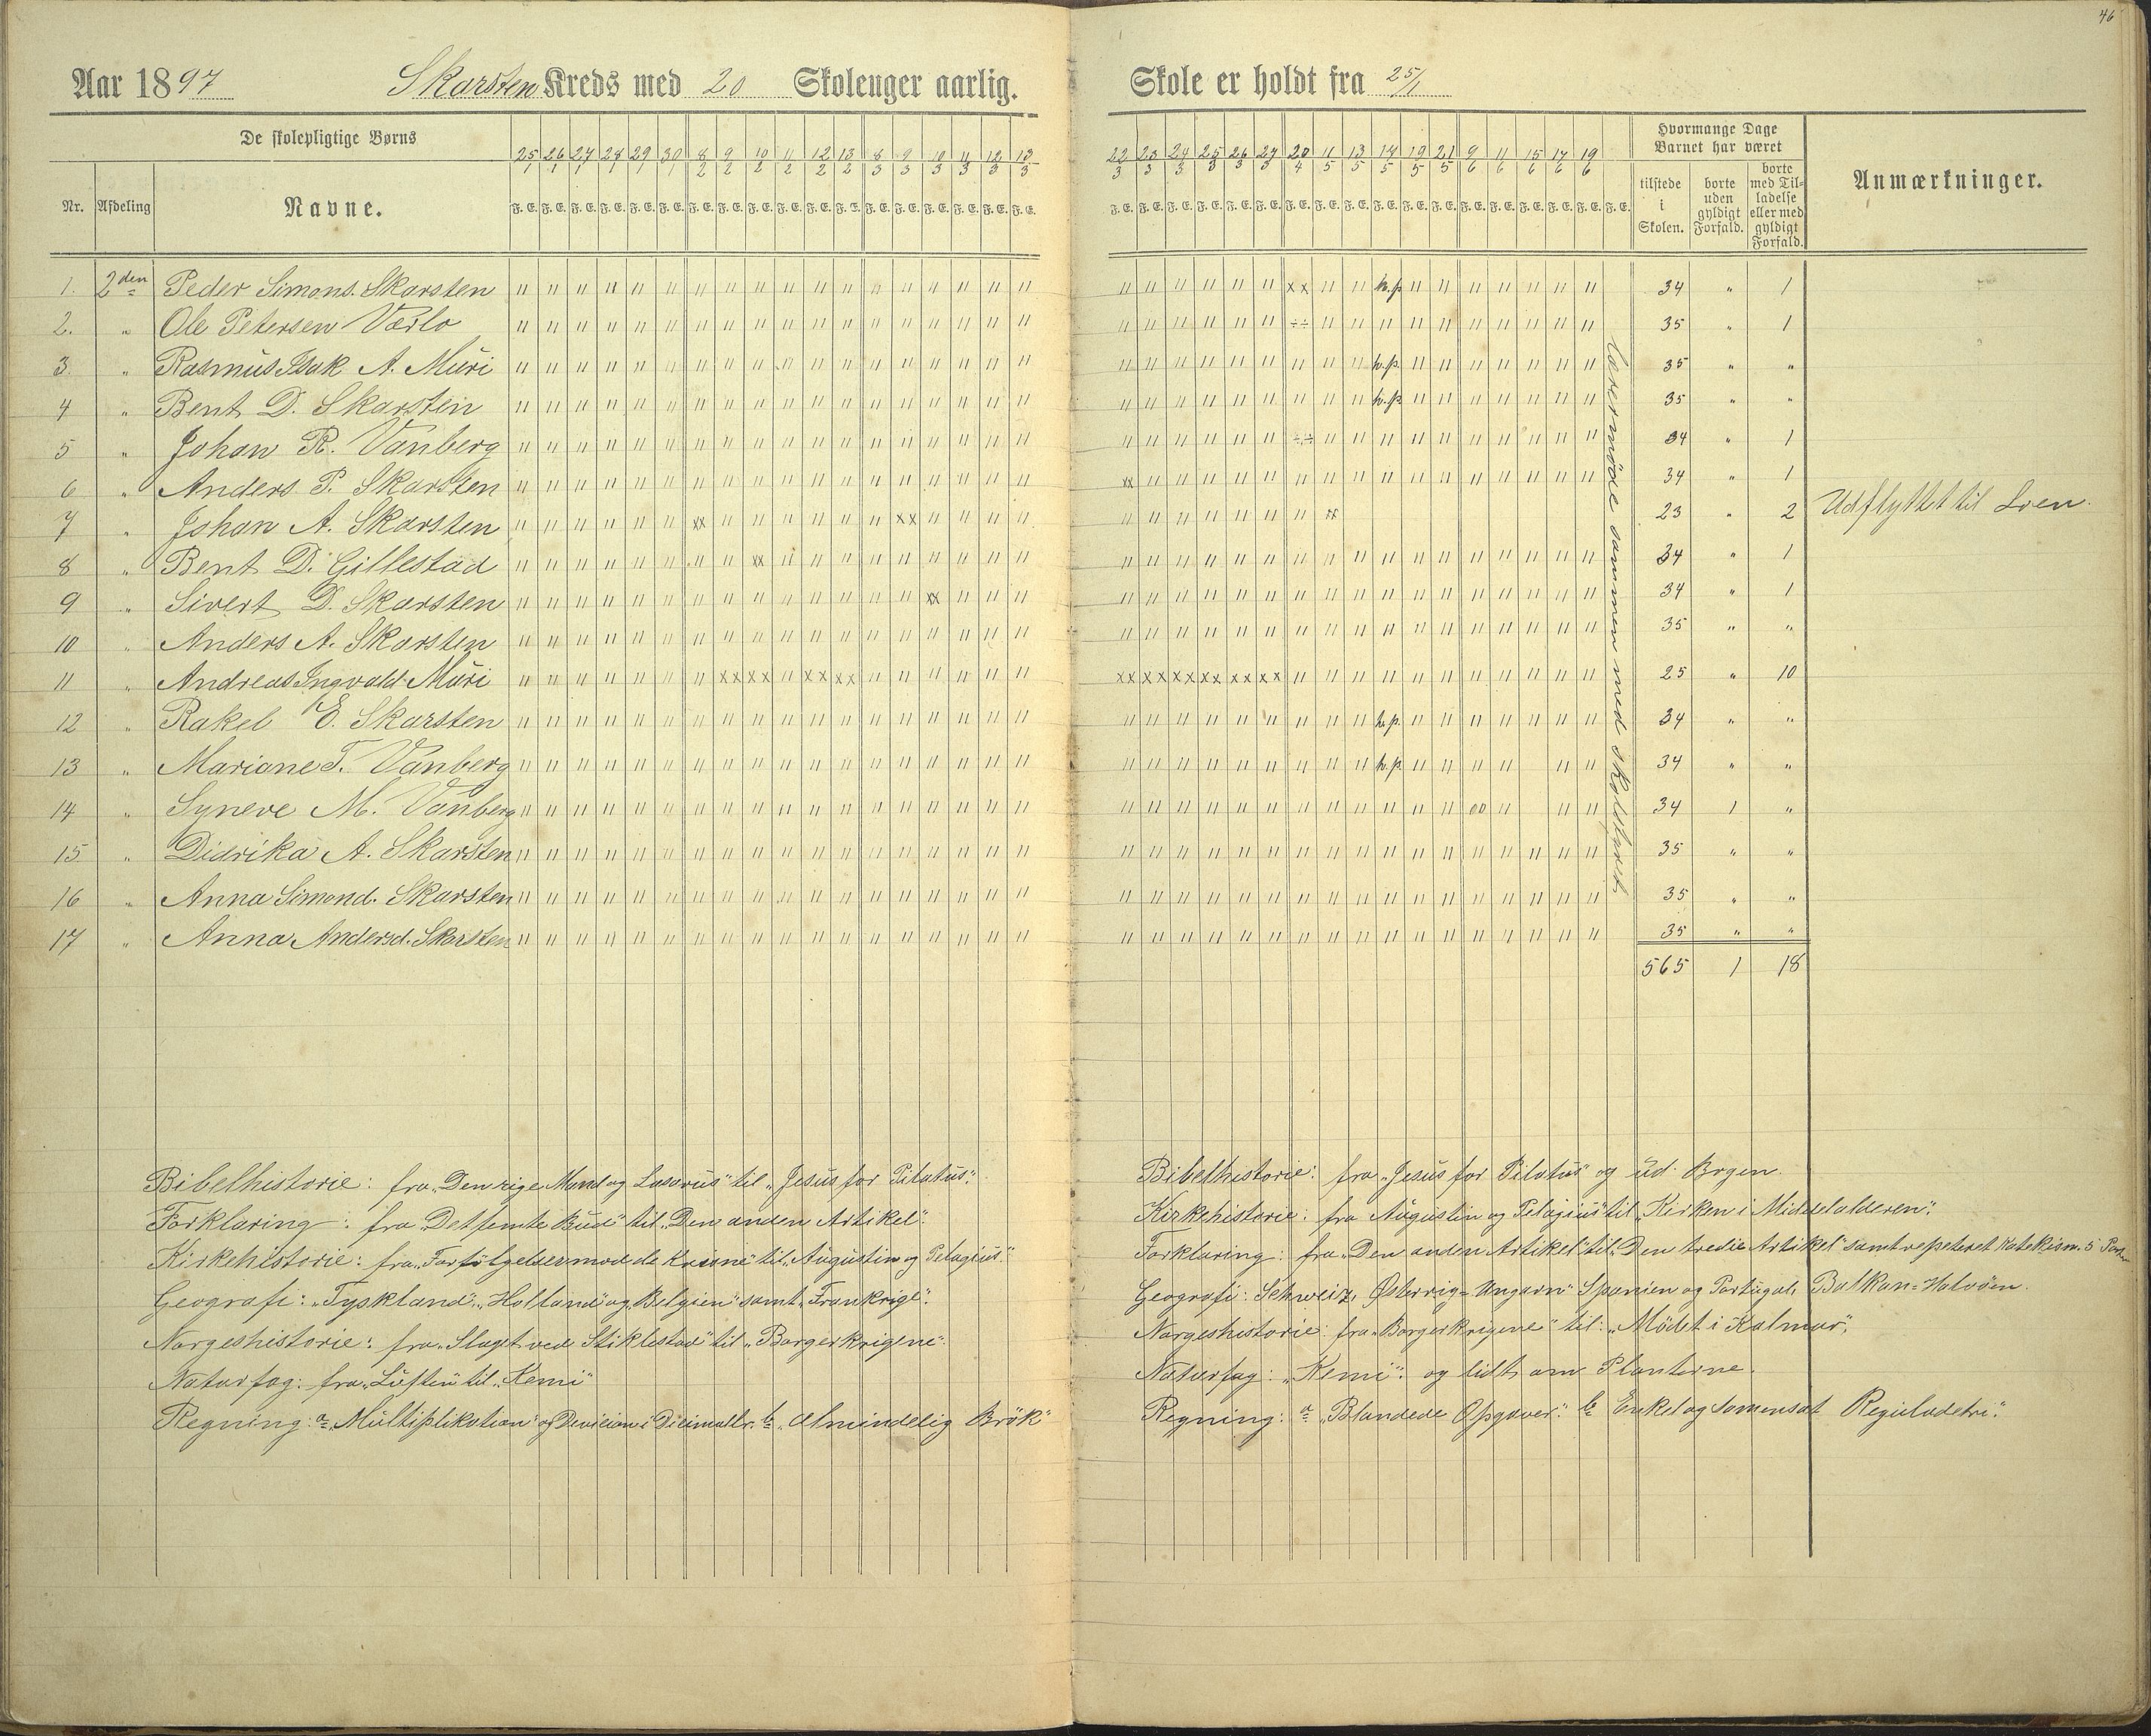 46
Aar 1897 Skarsten Kreds med 20 Skoleuger aarlig.
De skolepligtige Børns
Nr. Afdeling Navne.
25/1 26/1 27/1 28/1 29/1 30/1 8/2 9/2 10/2 11/2 12/2 13/2 8/3 9/3 10/3 11/3 12/3 13/3
F. E. F. E. F. E. F. E. F. E. F. E. F. E. F. E. F. E. F. E. F. E. F. E. F. E. F. E. F. E. F. E. F. E. F. E.
1. 2den Peder Simons. Skarsten
2. " Ole Petersen Værlo
3. " Rasmus Isak A. Muri
4 " Bent D. Skarsten
5 " Johan R. Vanberg
6 " Anders P. Skarsten
7 " Johan A. Skarsten
8 " Bent D. Gillestad
9 " Sivert D. Skarsten
10 " Anders A. Skarsten
11 " Andreas Ingvald Muri
12 " Rakel E. Skarsten
13 " Mariane T. Vanberg
14 " Syneve M. Vanberg
15 " Didrika A. Skarsten
16 " Anna Simond. Skarsten
17 " Anna Andersd. Skarsten
Bibelhistorie: fra „Den rige Mand og Lasarus" til „Jesus for Pilatus".
Forklaring: fra „Det femte Bud" til „Den anden Artikel".
Kirkehistorie: fra „Forfölgelser mod de Kristne" til „Augustin og Pelagius".
Geografi: „Tyskland", „Holland" og „Belgien" samt „Frankrige".
Norgeshistorie: fra „Slaget ved Stiklestad" til „Borgerkrigene".
Naturfag: fra „Luften" til „Kemi"
Regning: a „Multiplikation" og Devicion i Decimaltr. b „Almindelig Brök"
Skole er holdt fra 25/1
22/3 23/3 24/3 25/3 26/3 27/3 28/4 11/5 13/5 14/5 19/5 21/5 9/6 11/6 15/6 17/6 19/6
F. E. F. E. F. E. F. E. F. E. F. E. F. E. F. E. F. E. F. E. F. E. F. E. F. E. F. E. F. E. F. E. F. E. F. E.
Hvormange Dage Barnet har været
tilstede i Skolen.
borte uden gyldigt Forfald.
borte med Tilladelse eller med gyldigt Forfald.
Anmærkninger.
Lærermöde sammen med skolestyret
h.p. 34 " 1
35 " 1
h.p. 35 " "
h.p. 35 " "
34 " 1
34 " 1
23 " 2 Udflyttet til Loen.
34 " 1
34 " 1
35 " "
25 " 10
h.p. 34 " "
h.p. 34 " "
34 1 "
35 " "
35 " "
35 " "
565 1 18
Bibelhistorie: fra „Jesus for Pilatus" og ud Bogen.
Kirkehistorie: fra Augustin og Pelagius" til „Kirken i Middelalderen".
Forklaring: fra „Den anden Artikel" til „Den tredie Artikel" samt repeteret Katekism. 5 Parter
Geografi: Schweiz, Østerrig-Ungarn Spanien og Portugal, Balkan-Halvöen.
Norgeshistorie: fra „Borgerkrigene" til: „Mödet i Kalmar".
Naturfag: „Kemi" og lidt om Planterne.
Regning: a „Blandede Opgaver". b Enkel og Samensat Reguladetri".